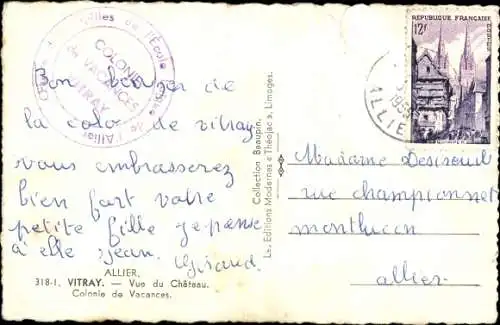 des Pupilles de l'École
de l'Allier
COLONIE
de VACANCES
VITRAY
Bon baiser de
la colo de vitray
vous embrasserez
bien fort votre
petite fille je pense
à elle jean.
Giraud.
ALLIER.
318-1. VITRAY. — Vue du Château.
Colonie de Vacances.
Collection Beaupin.
Les Editions Modernes « Théojac », Limoges.
RÉPUBLIQUE FRANÇAISE
12f
QUIMPER
1955
ALLIE
Madame
rue championnet
montlucon
allier